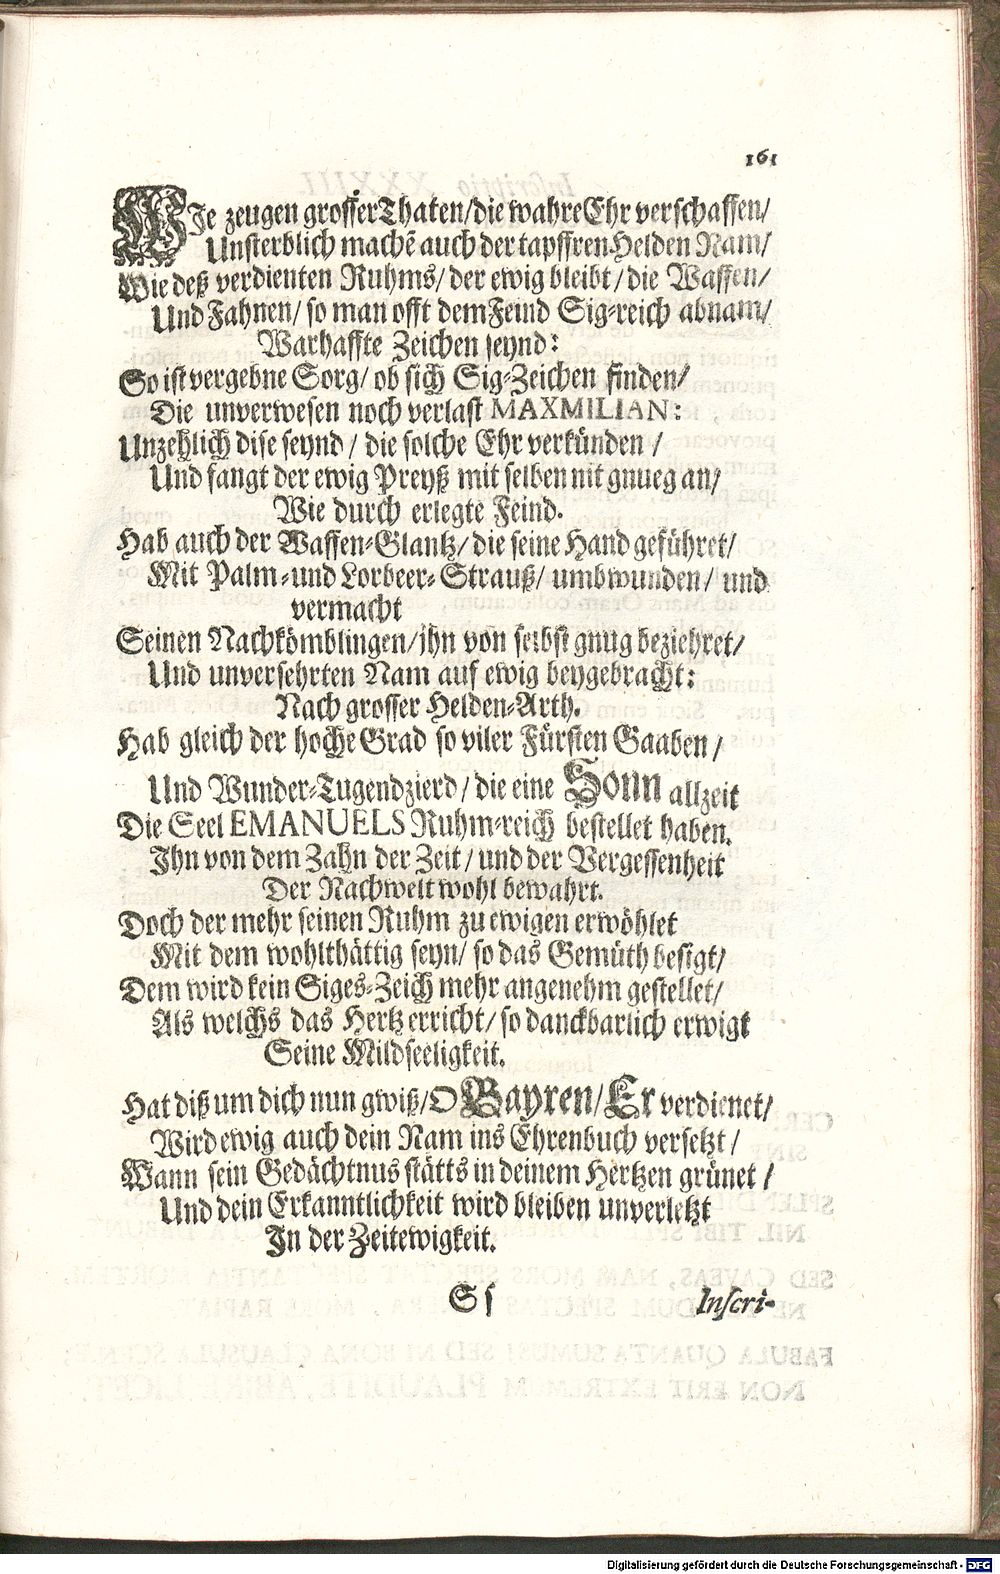 161
WIe zeugen grosser Thaten/ die wahre Ehr verschaffen/
Unsterblich machē auch der tapffren Helden Nam/
Wie deß verdienten Ruhms/ der ewig bleibt/ die Waffen/
Und Fahnen/ so man offt dem Feind Sig-reich abnam/
Warhaffte Zeichen seynd:
So ist vergebne Sorg/ ob sich Sig-Zeichen finden/
Die unverwesen noch verlast MAXMILIAN:
Unzehlich dise seynd/ die solche Ehr verkünden/
Und fangt der ewig Preyß mit selben nit gnueg an/
Wie durch erlegte Feind.
Hab auch der Waffen-Glantz/ die seine Hand geführet/
Mit Palm-und Lorbeer-Strauß/ umbwunden/ und
vermacht
Seinen Nachkömblingen/ ihn von selbst gnug beziehret/
Und unversehrten Nam auf ewig beygebracht:
Nach grosser Helden-Arth.
Hab gleich der hoche Grad so viler Fürsten Gaaben/
Und Wunder-Tugendzierd/ die eine Sonn allzeit
Die Seel EMANUELS Ruhm-reich bestellet haben.
Ihn von dem Zahn der Zeit/ und der Vergessenheit
Der Nachwelt wohl bewahrt.
Doch der mehr seinen Ruhm zu ewigen erwöhlet
Mit dem wohlthättig seyn/ so das Gemüth besigt/
Dem wird kein Siges-Zeich mehr angenehm gestellet/
Als welchs das Hertz erricht/ so danckbarlich erwigt
Seine Mildseeligkeit.
Hat diß um dich nun gwiß/ O Bayren/ Er verdienet/
Wird ewig auch dein Nam ins Ehrenbuch versetzt/
Wann sein Gedächtnus stätts in deinem Hertzen grünet/
Und dein Erkanntlichkeit wird bleiben unverletzt
In der Zeitewigkeit.
S s
Inscri-
Digitalisierung gefördert durch die Deutsche Forschungsgemeinschaft - DFG